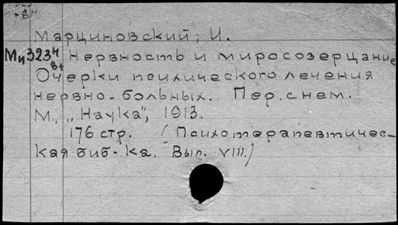 Марциновский, И.
Ми3234 Нервность и миросозерцание
в+
Очерки психического лечения
нервно-больных. Пер. с нем.
М., „Наука“, 1913.
176 стр. /Психотерапевтичес-
кая биб-ка. Вып. VIII./